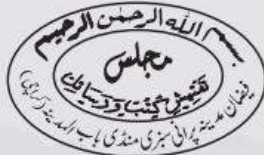 بسم اللہ الرحمن الرحیم
مجلس
تفتیش کتب و رسائل
فیضان مدینہ پرانی سبزی منڈی باب المدینہ (کراچی)